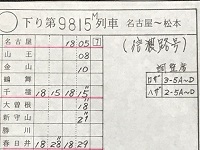 下り第9815M列車 名古屋〜松本
名古屋 18 05 7
(信濃路号)
山王 08
金山 10
鶴舞
千種 18 15 18 15
大曽根 18
新守山 21
勝川
春日井 18 28 18 29
3-5A~D
2-5A~D